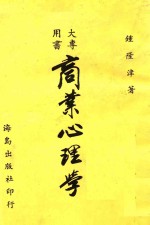 鍾隆津著
大專
用書
商業心理學
海島出版社印行